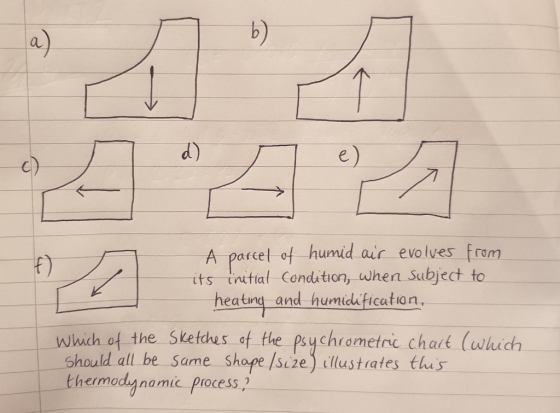 a)
b)
c)
d)
e)
f)
A parcel of humid air evolves from
its initial condition, when subject to
heating and humidification.
Which of the sketches of the psychrometric chart (which
should all be same shape/size) illustrates this
thermodynamic process?